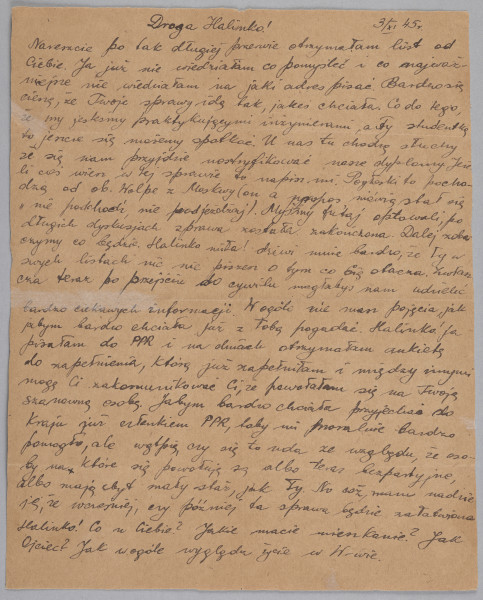 Droga Halinko! 3/XI 45r.
Nareszcie po tak długiej przerwie otrzymałam list od
Ciebie. Ja już nie wiedziałam co pomyśleć i co najważ-
niejsze nie wiedziałam na jaki adres pisać. Bardzo się
cieszę, że Twoje sprawy idą tak, jakeś chciała. Co do tego,
że my jesteśmy praktykującymi inżynierami, a Ty studentką
to jeszcze się możemy spotkać. U nas tu chodzą słuchy
że się nam przyjdzie nostryfikować nasze dyplomy. Jeże-
li coś wiesz w tej sprawie to napisz mi. Pogłoski te pocho-
dzą od ob. Holpe z Moskwy (on a propos mówiąc stał się
"nie podchodi, nie podjeżdżaj"). Myśmy tutaj optowali, po
długich dyskusjach sprawa została zakończona. Dalej zoba-
czymy co będzie. Halinko miła! Dziwi mnie bardzo, że Ty w
swych listach nic nie piszesz o tym co Cię otacza. Zwłasz-
cza teraz po przejściu do cywilu mogłabyś nam udzielić
bardzo ciekawych informacji. W ogóle nie masz pojęcia jak
jabym bardzo chciała już z Tobą pogadać. Halinko! Ja
pisałam do PPR i na dniach otrzymałam ankietę
do zapełnienia, którą już zapełniłam i między innymi
mogę Ci zakomunikować Ci, że powołałam się na Twoją
szanowną osobę. Jabym bardzo chciała przyjechać do
Kraju już członkiem PPR, toby mi moralnie bardzo
pomogło, ale wątpię czy się to uda ze względu, że oso-
by na które się powołuję są albo teraz bezpartyjne,
albo mają zbyt mały staż, jak Ty. No cóż, mam nadzie-
ję, że wcześniej, czy później ta sprawa będzie załatwiona
Halinko! Co u Ciebie? Jakie macie mieszkanie? Jak
Ojciec? Jak wogóle wygląda życie w W-wie.